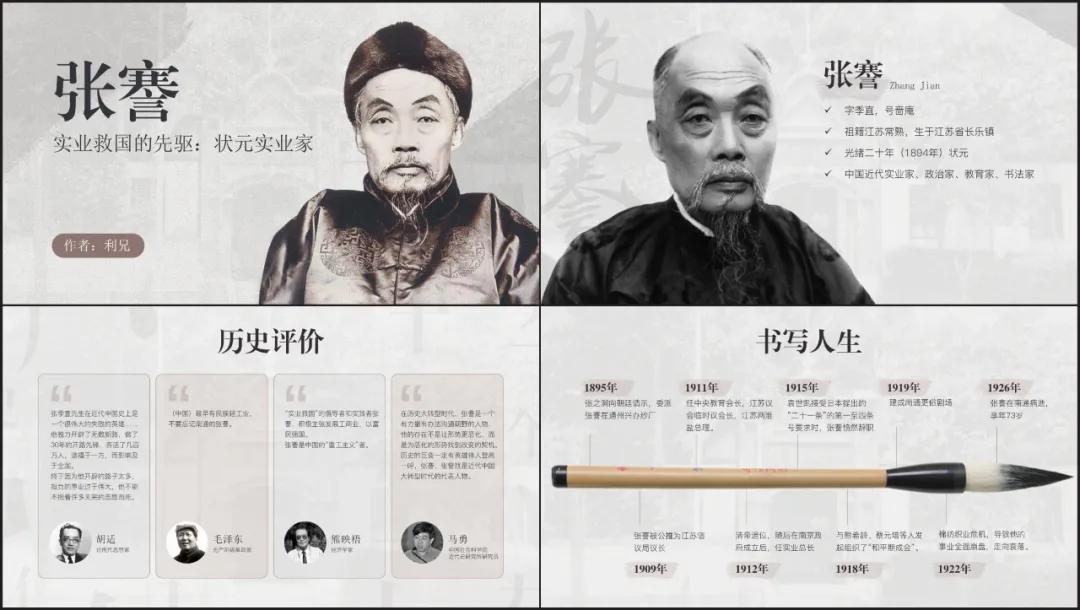 张謇
实业救国的先驱：状元实业家
作者：利兄
张謇
张謇 Zhang Jian
✓ 字季直，号啬庵
✓ 祖籍江苏常熟，生于江苏省长乐镇
✓ 光绪二十年（1894年）状元
✓ 中国近代实业家、政治家、教育家、书法家
历史评价
张季直先生在近代中国史上是
一个很伟大的失败的英雄……
他独力开辟了无数新路，做了
30年的开路先锋，养活了几百
万人，造福于一方，而影响及
于全国。
终于因为他开辟的路子太多，
担负的事业过于伟大，他不能
不抱着许多未完的志愿而死。
胡适
近代代表思想家
（中国）最早有民族轻工业，
不要忘记南通的张謇。
毛泽东
无产阶级革命家
“实业救国”的倡导者和实践者张
謇，积极主张发展工商业，以富
民强国。
张謇是中国的“重工主义”者。
熊映梧
经济学家
在历史大转型时代，张謇是一个
有力量有办法沟通朝野的人物，
他的存在不是让形势更恶化，而
是为恶化的形势找到改变的契机。
历史的巨变一定有英雄伟人登高
一呼，张謇、张詧就是近代中国
大转型时代的代表人物。
马勇
中国社会科学院
近代史研究所研究员
书写人生
1895年
张之洞向朝廷请示，委派
张謇在通州兴办纱厂
1911年
任中央教育会长，江苏议
会临时议会长，江苏两淮
盐总理。
1915年
袁世凯接受日本提出的
“二十一条”的第一至四条
号要求时，张謇愤然辞职
1919年
建成南通更俗剧场
1926年
张謇在南通病逝，
享年73岁
张謇被公推为江苏谘
议局议长
1909年
清帝逊位，随后在南京政
府成立后，任实业总长
1912年
与熊希龄、蔡元培等人发
起组织了“和平期成会”。
1918年
棉纺织业危机，导致他的
事业全面崩盘，走向衰落。
1922年